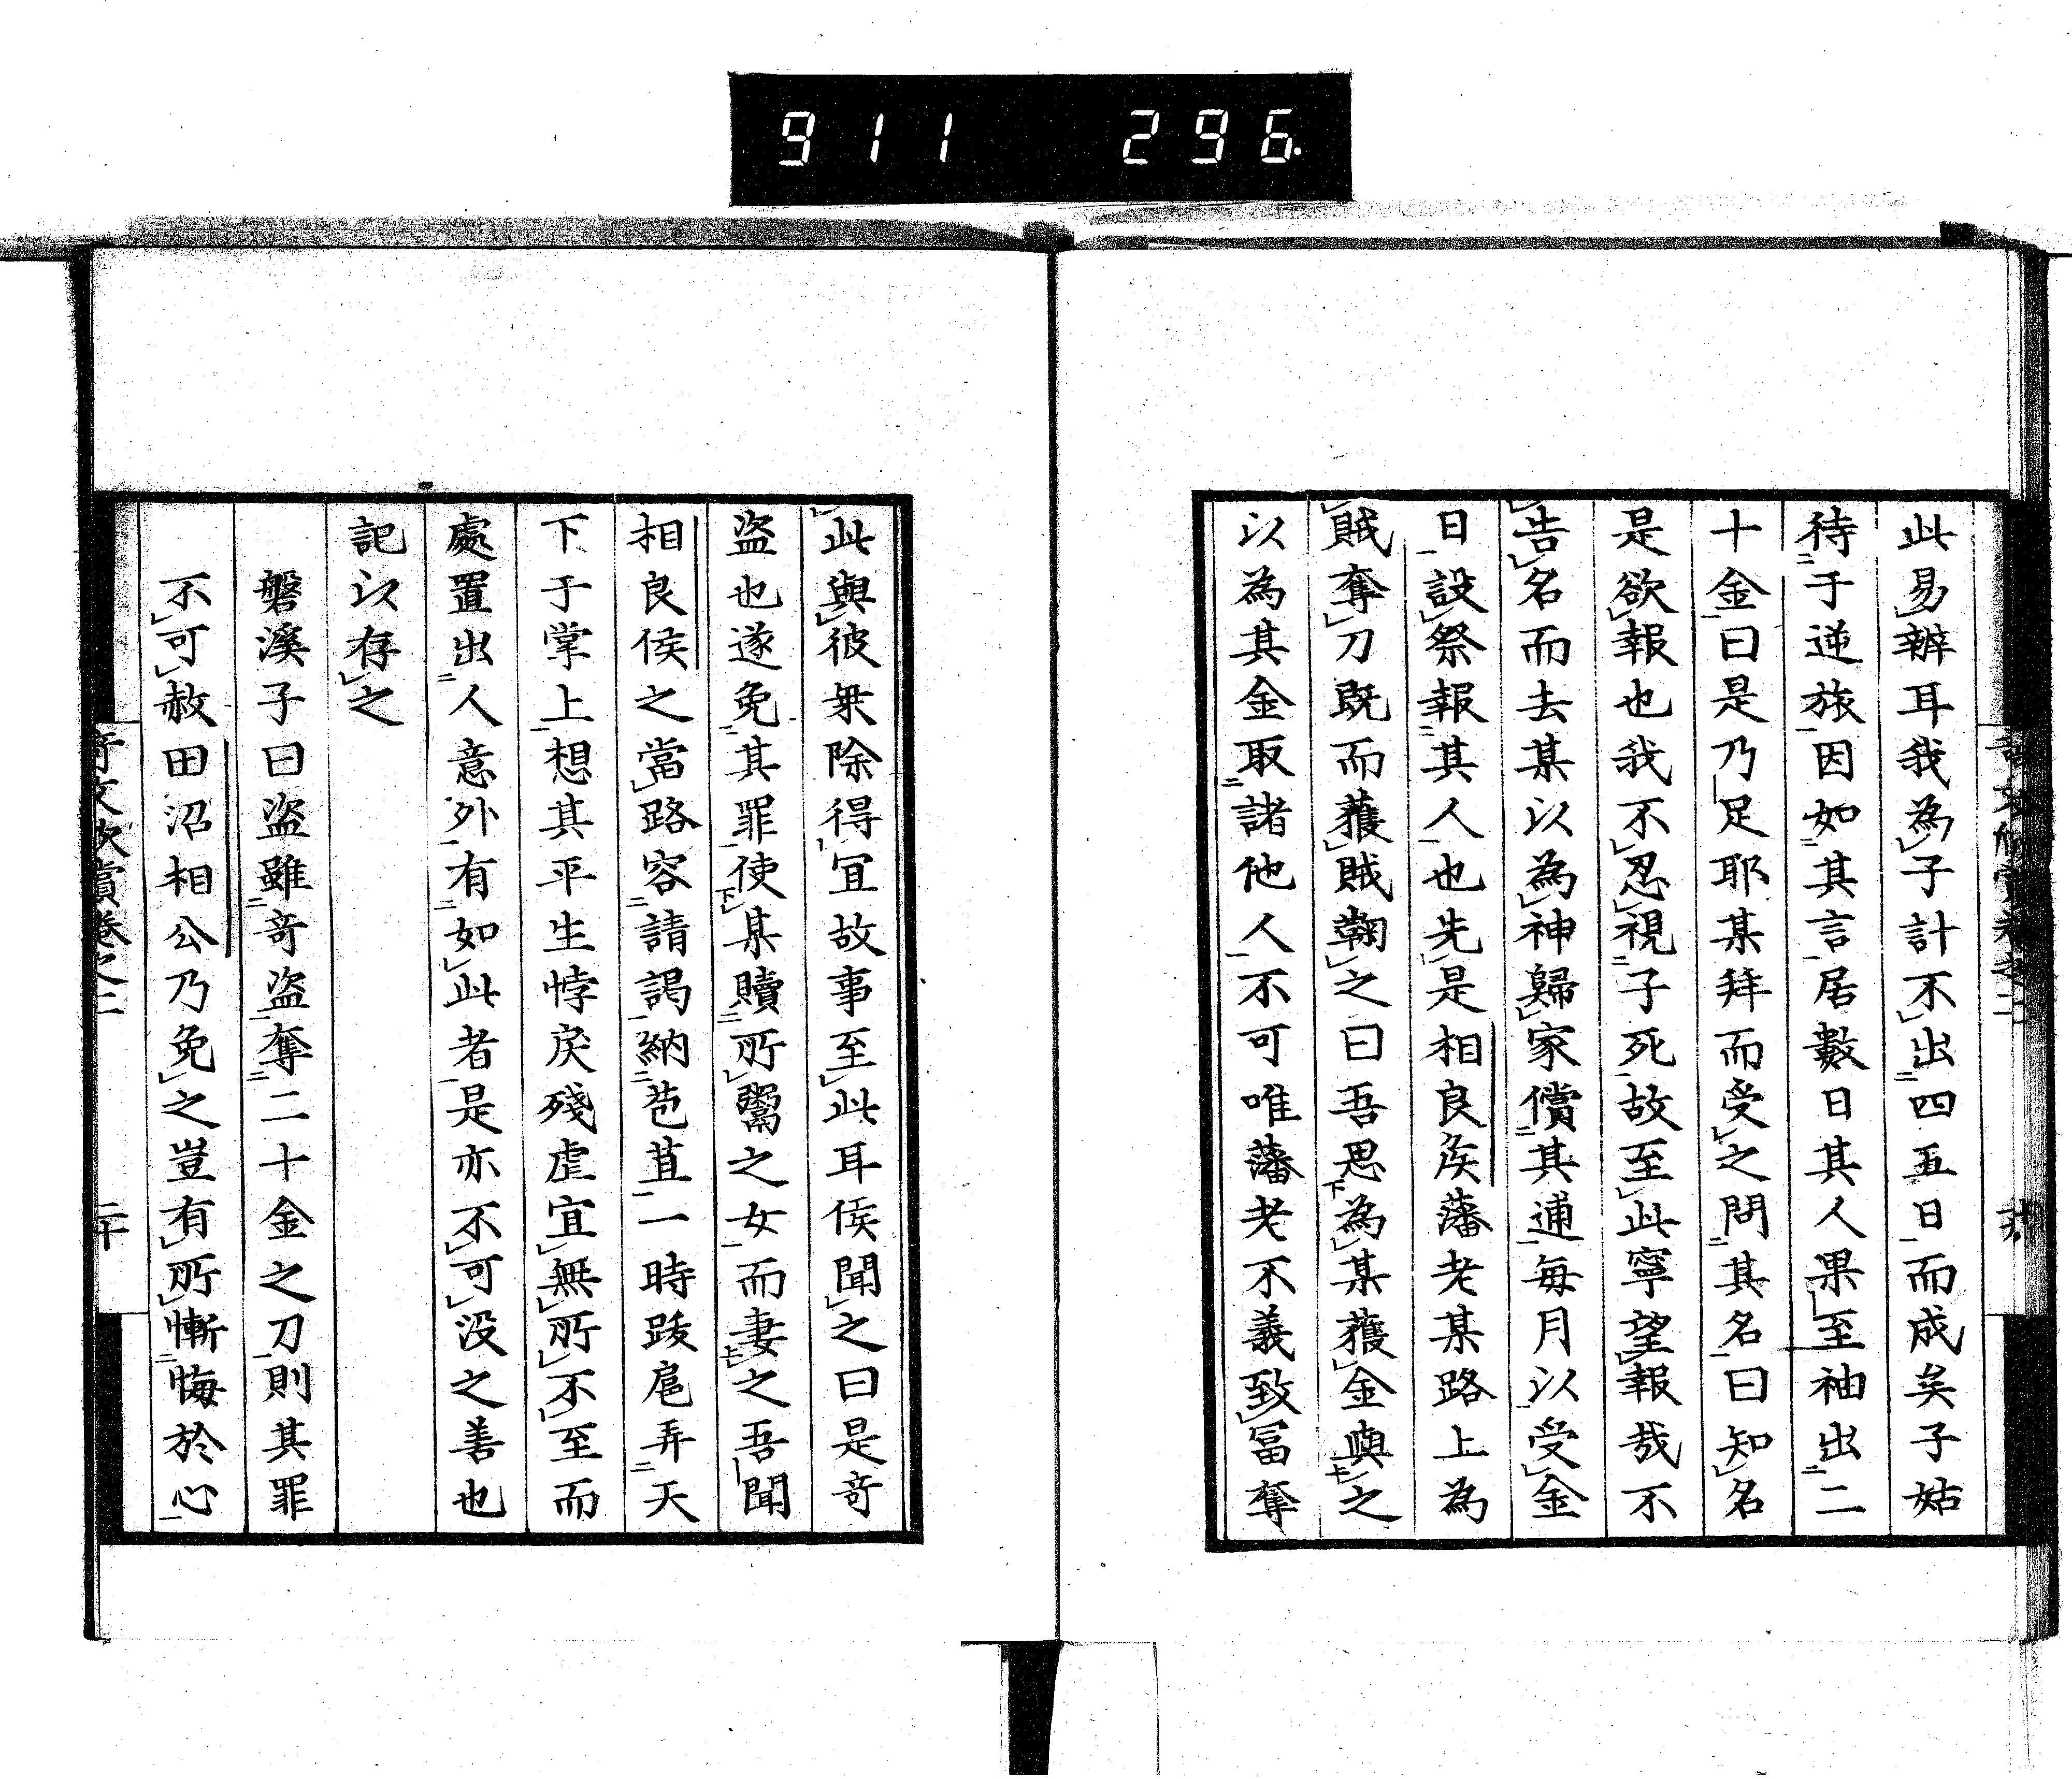 911 296.
此易辨耳我為子計不出四五日而成矣子姑
待于逆旅因如其言居數日其人果至袖出二
十金曰是乃足耶某拜而受之問其名曰知名
是欲報也我不忍視子死故至此寧望報哉不
告名而去某以為神歸家償其逋每月以受金
日設祭報其人也先是相良侯藩老某路上為
賊奪刀既而獲賊鞠之曰吾思為某獲金與之
以為其金取諸他人不可唯藩老不義致冨奪
此與彼乗除得宜故事至此耳侯聞之曰是竒
盗也遂免其罪使某贖所鬻之女而妻之吾聞
相良侯之當路容請謁納苞苴一時跋扈弄天
下于掌上想其平生悖戾殘虐宜無所不至而
處置出人意外有如此者是亦不可没之善也
記以存之
磐溪子曰盗雖竒盗奪二十金之刀則其罪
不可赦田沼相公乃免之豈有所慚悔於心
竒文欣賞卷之二 二十